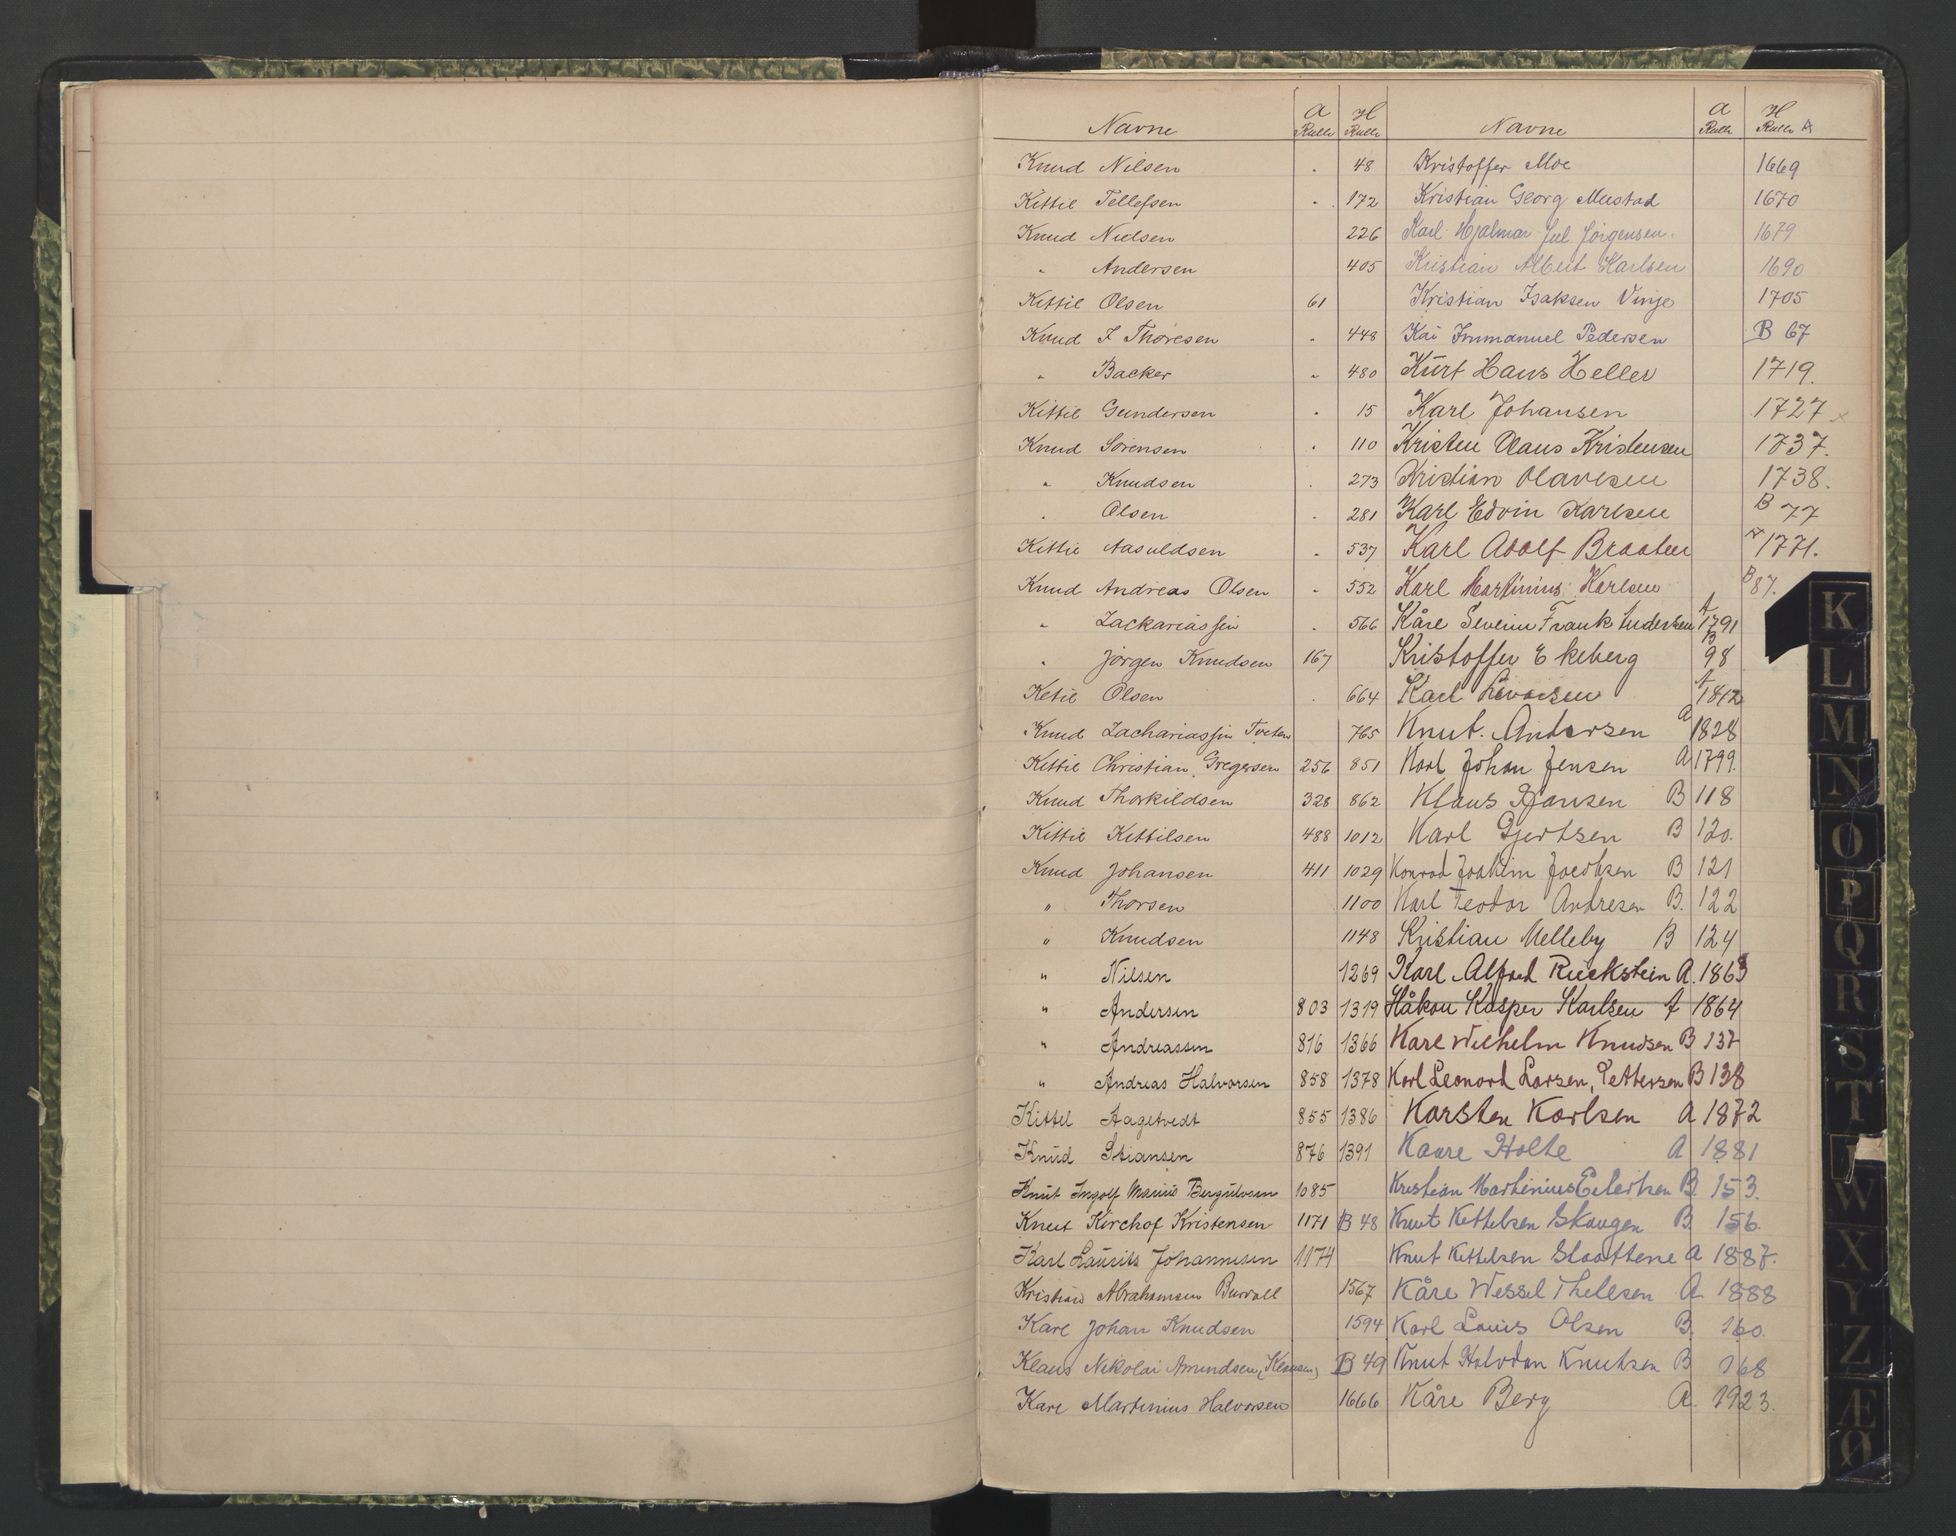 Navne A Rulle H Rulle Navne A Rulle H Rulle A
Knud Nilsen . 48 Kristoffer Moe 1669
Kittil Tellefsen . 172 Kristian Georg Mustad 1670
Knud Nielsen 226 Karl Hjalmar Juel Jörgensen. 1679
" Andersen 405 Kristian Albert Karlsen 1690
Kittil Olsen 61 Kristian Isaksen Vinje 1705
Knud I Thoresen . 448 Kai Immanuel Pedersen B 67
" Backer " 480 Kurt Hans Heller 1719.
Kittil Gundersen . 15 Karl Johansen 1727 x
Knud Sörensen . 110 Kristen Claus Kristensen 1737.
" Knudsen . 273 Kristian Olavesen 1738.
" Olsen . 281 Karl Edvin Karlsen B 77
Kittil Aasuldsen . 537 Karl Adolf Braaten A 1771.
Knud Andreas Olsen . 552 Karl Martinius Karlsen B 87.
" Zackariassen . 566 Kåre Severin Frank A 1791
" Jörgen Knudsen 167 Kristoffer Ekeberg B 98
Ketil Olsen . 664 Karl A 1812
Knud Zachariassen 765 Knut. Andersen A 1828
Kittil Christian Gregersen 256 851 Karl Johan Jensen A 1799.
Knud Thorkildsen 328 862 Klaus Hansen B 118
Kittil Kittilsen 488 1012 Karl Gjertsen B 120.
Knud Johansen 411 1029 Konrad Joakim Jacobsen B 121
" Thorsen 1100 Karl Teodor Andresen B. 122
" Knudsen 1148 Kristian Melleby B 124
" Nilsen 1269 Karl Alfred Rückstein A. 1863
" Andersen 803 1319 Håkon Kasper Karlsen A 1864
" Andreassen 816 1366 Karl Wilhelm Knudsen B 137
" Andreas Halvorsen 858 1378 Karl Leonard Larsen, Pettersen B 138
Kittel Aagetvedt 855 1386 Karsten Karlsen A 1872
Knud Stiansen 876 1391 Kaare Holte A 1881
Knut Ingolf Marius 1085 Kristian Martinius Eilertsen B. 153.
Knut Kirchof Kristensen 1171 B 48 Knut Kettelsen Skaugen B. 156.
Karl Laurits Johannesen 1174 Knut Kettelsen Slaattene A 1887.
Kristian Abrahamsen Burvall 1567 Kåre Wessel Thelesen A. 1888
Karl Johan Knudsen 1594 Karl Louis Olsen B. 160.
Klaus Nikolai Amundsen, (Klausen) B 49 Knut Halvdan Knutsen B 168
Karl Martinius Halvorsen 1666 Kåre Berg A. 1923.
K
L
M
N
O
P
Q
R
S
T
W
X
Y
Z
Æ
Ø